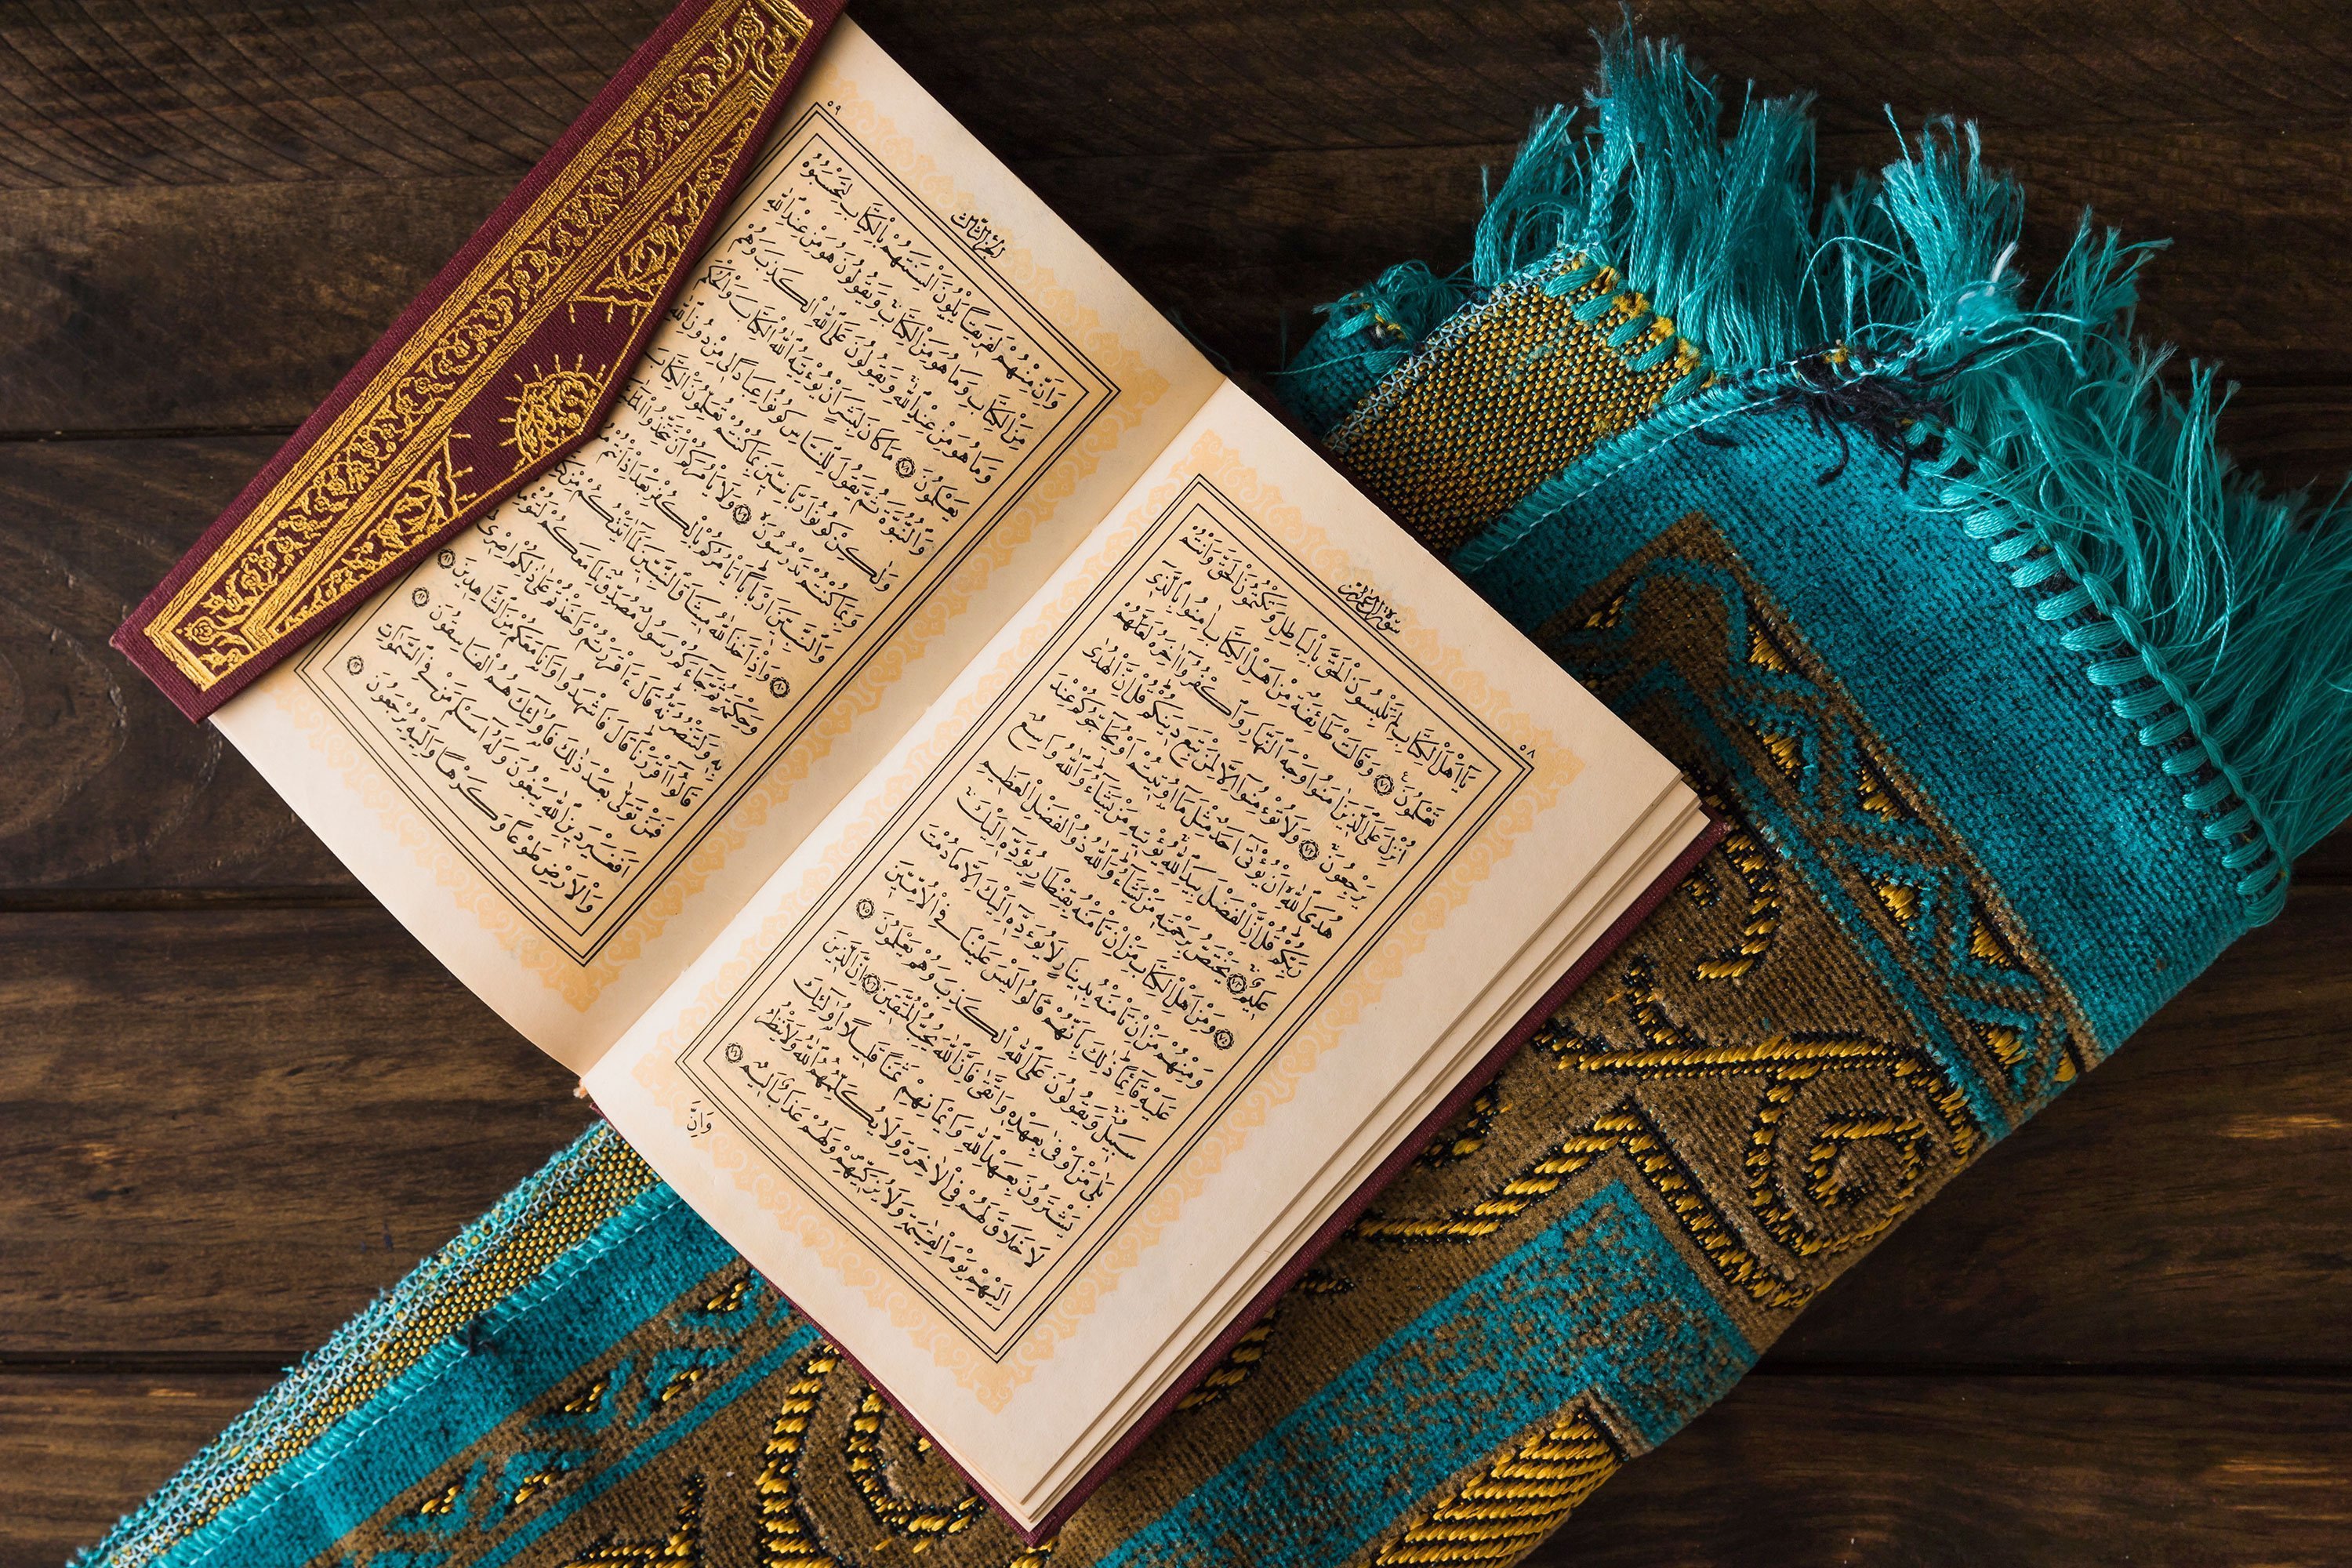 سُورَةُ آلِ عِمْرَانَ
٥٨
يَآ أَهْلَ الْكِتَابِ لِمَ تَلْبِسُونَ الْحَقَّ بِالْبَاطِلِ وَتَكْتُمُونَ الْحَقَّ وَاَنْتُمْ
تَعْلَمُونَ ٧١ وَقَالَتْ طَآئِفَةٌ مِنْ اَهْلِ الْكِتَابِ اٰمِنُوا بِالَّذِٓي
اُنْزِلَ عَلَى الَّذِينَ اٰمَنُوا وَجْهَ النَّهَارِ وَاكْفُرُوٓا اٰخِرَهُ لَعَلَّهُمْ
يَرْجِعُونَ ٧٢ وَلَا تُؤْمِنُوٓا اِلَّا لِمَنْ تَبِعَ دِينَكُمْ قُلْ اِنَّ الْهُدٰى
هُدَى اللّٰهِ اَنْ يُؤْتٰٓى اَحَدٌ مِثْلَ مَآ اُو۫تِيتُمْ اَوْ يُحَآجُّوكُمْ عِنْدَ
رَبِّكُمْ قُلْ اِنَّ الْفَضْلَ بِيَدِ اللّٰهِ يُؤْتِيهِ مَنْ يَشَآءُ وَاللّٰهُ وَاسِعٌ
عَلِيمٌ ٧٣ يَخْتَصُّ بِرَحْمَتِهِ مَنْ يَشَآءُ وَاللّٰهُ ذُو الْفَضْلِ الْعَظِيمِ
٧٤ وَمِنْ اَهْلِ الْكِتَابِ مَنْ اِنْ تَأْمَنْهُ بِقِنْطَارٍ يُؤَدِّهِٓ اِلَيْكَ
وَمِنْهُمْ مَنْ اِنْ تَأْمَنْهُ بِدِينَارٍ لَا يُؤَدِّهِٓ اِلَيْكَ اِلَّا مَا دُمْتَ
عَلَيْهِ قَآئِمًا ذٰلِكَ بِاَنَّهُمْ قَالُوا لَيْسَ عَلَيْنَا فِي الْاُمِّيِّينَ
سَبِيلٌ وَيَقُولُونَ عَلَى اللّٰهِ الْكَذِبَ وَهُمْ يَعْلَمُونَ ٧٥
بَلٰى مَنْ اَوْفٰى بِعَهْدِهِ وَاتَّقٰى فَاِنَّ اللّٰهَ يُحِبُّ الْمُتَّقِينَ ٧٦ اِنَّ الَّذِينَ
يَشْتَرُونَ بِعَهْدِ اللّٰهِ وَاَيْمَانِهِمْ ثَمَنًا قَلِيلًا اُو۬لٰٓئِكَ
لَا خَلَاقَ لَهُمْ فِي الْاٰخِرَةِ وَلَا يُكَلِّمُهُمُ اللّٰهُ وَلَا يَنْظُرُ
اِلَيْهِمْ يَوْمَ الْقِيٰمَةِ وَلَا يُزَكِّيهِمْ وَلَهُمْ عَذَابٌ اَلِيمٌ ٧٧
وَاِنَّ
الجُزْءُ الثَّالِثُ
٥٩
وَاِنَّ مِنْهُمْ لَفَرِيقًا يَلْوُ۫نَ اَلْسِنَتَهُمْ بِالْكِتَابِ لِتَحْسَبُوهُ
مِنَ الْكِتَابِ وَمَا هُوَ مِنَ الْكِتَابِ وَيَقُولُونَ هُوَ مِنْ عِنْدِ اللّٰهِ
وَمَا هُوَ مِنْ عِنْدِ اللّٰهِ وَيَقُولُونَ عَلَى اللّٰهِ الْكَذِبَ وَهُمْ
يَعْلَمُونَ ٧٨ مَا كَانَ لِبَشَرٍ اَنْ يُؤْتِيَهُ اللّٰهُ الْكِتَابَ وَالْحُكْمَ
وَالنُّبُوَّةَ ثُمَّ يَقُولَ لِلنَّاسِ كُونُوا عِبَادًا لِي مِنْ دُونِ اللّٰهِ
وَلٰكِنْ كُونُوا رَبَّانِيِّينَ بِمَا كُنْتُمْ تُعَلِّمُونَ الْكِتَابَ
وَبِمَا كُنْتُمْ تَدْرُسُونَ ٧٩ وَلَا يَأْمُرَكُمْ اَنْ تَتَّخِذُوا
وَالنَّبِيِّينَ اَرْبَابًا اَيَأْمُرُكُمْ بِالْكُفْرِ بَعْدَ اِذْ اَنْتُمْ
٨٠ وَاِذْ اَخَذَ اللّٰهُ مِيثَاقَ النَّبِيِّينَ لَمَآ اٰتَيْتُكُمْ مِنْ
وَحِكْمَةٍ ثُمَّ جَآءَكُمْ رَسُولٌ مُصَدِّقٌ لِمَا مَعَكُمْ لَتُؤْمِنُنَّ
بِهِ وَلَتَنْصُرُنَّهُ قَالَ ءَاَقْرَرْتُمْ وَاَخَذْتُمْ عَلٰى ذٰلِكُمْ اِصْرِي
قَالُوٓا اَقْرَرْنَا قَالَ فَاشْهَدُوا وَاَنَا مَعَكُمْ مِنَ الشَّاهِدِينَ ٨١
فَمَنْ تَوَلّٰى بَعْدَ ذٰلِكَ فَاُو۬لٰٓئِكَ هُمُ الْفَاسِقُونَ ٨٢
اَفَغَيْرَ دِينِ اللّٰهِ يَبْغُونَ وَلَهُٓ اَسْلَمَ مَنْ فِي السَّمٰوَاتِ
وَالْاَرْضِ طَوْعًا وَكَرْهًا وَاِلَيْهِ يُرْجَعُونَ ٨٣